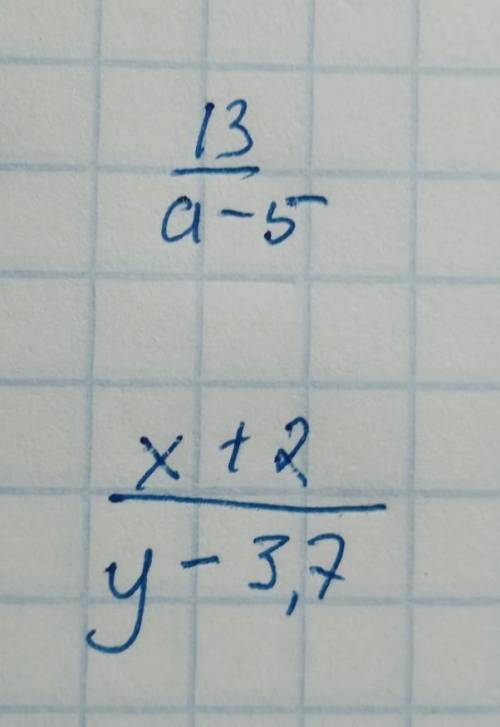 13
a - 5
x + 2
y - 3,7